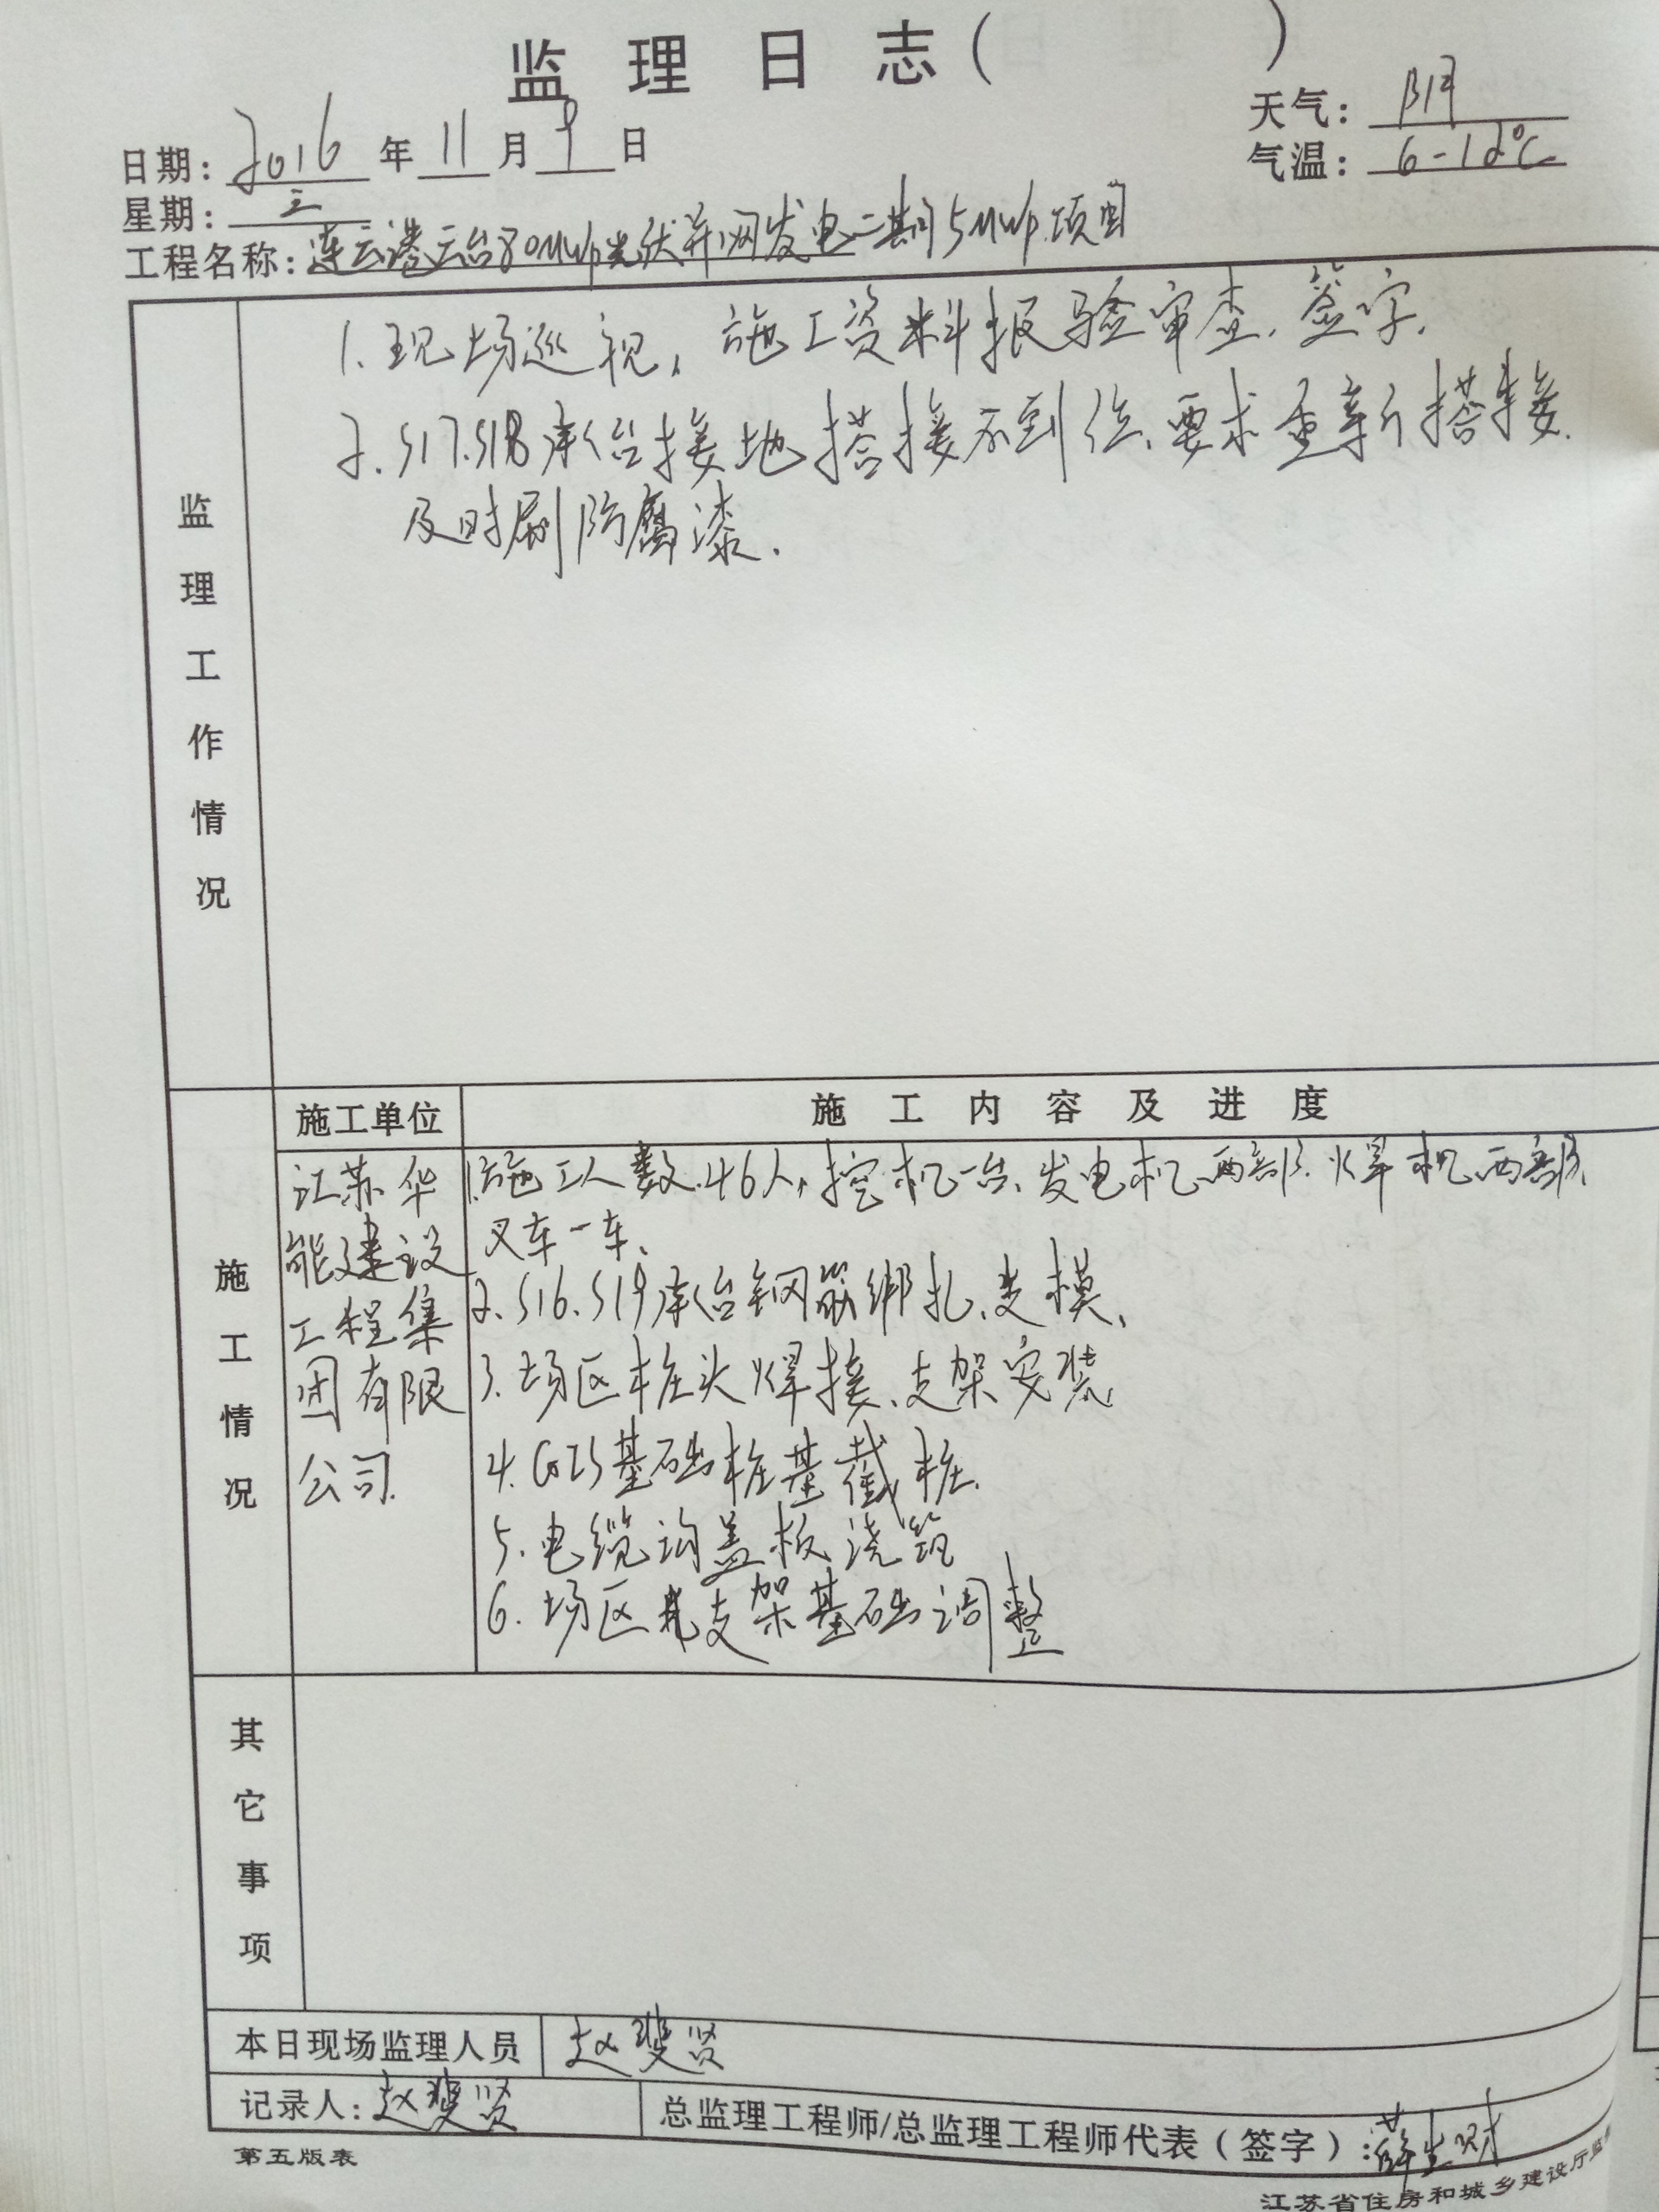 监理日志( )
日期: 2016 年 11 月 9 日
天气: 阴
星期: 三
气温: 6-12℃
工程名称: 连云港云台80MWp光伏并网发电二期5MWp项目
监理工作情况
1.现场巡视，施工资料报验审查、签字.
2.S17.S18承台接地搭接不到位、要求重新搭接.
及时刷防腐漆.
施工单位
施工内容及进度
施工情况
江苏华
能建设
工程集
团有限
公司.
1.施工人数.46人，挖机一台、发电机两部.焊机两部
叉车一车、
2.S16.S19承台钢筋绑扎、支模、
3.场区桩头焊接、支架安装
4.GIS基础桩基截桩.
5.电缆沟盖板浇筑
6.场区支架基础调整
其它事项
本日现场监理人员 赵斐贤
记录人: 赵斐贤
总监理工程师/总监理工程师代表（签字）: 薛生财
第五版表
江苏省住房和城乡建设厅监